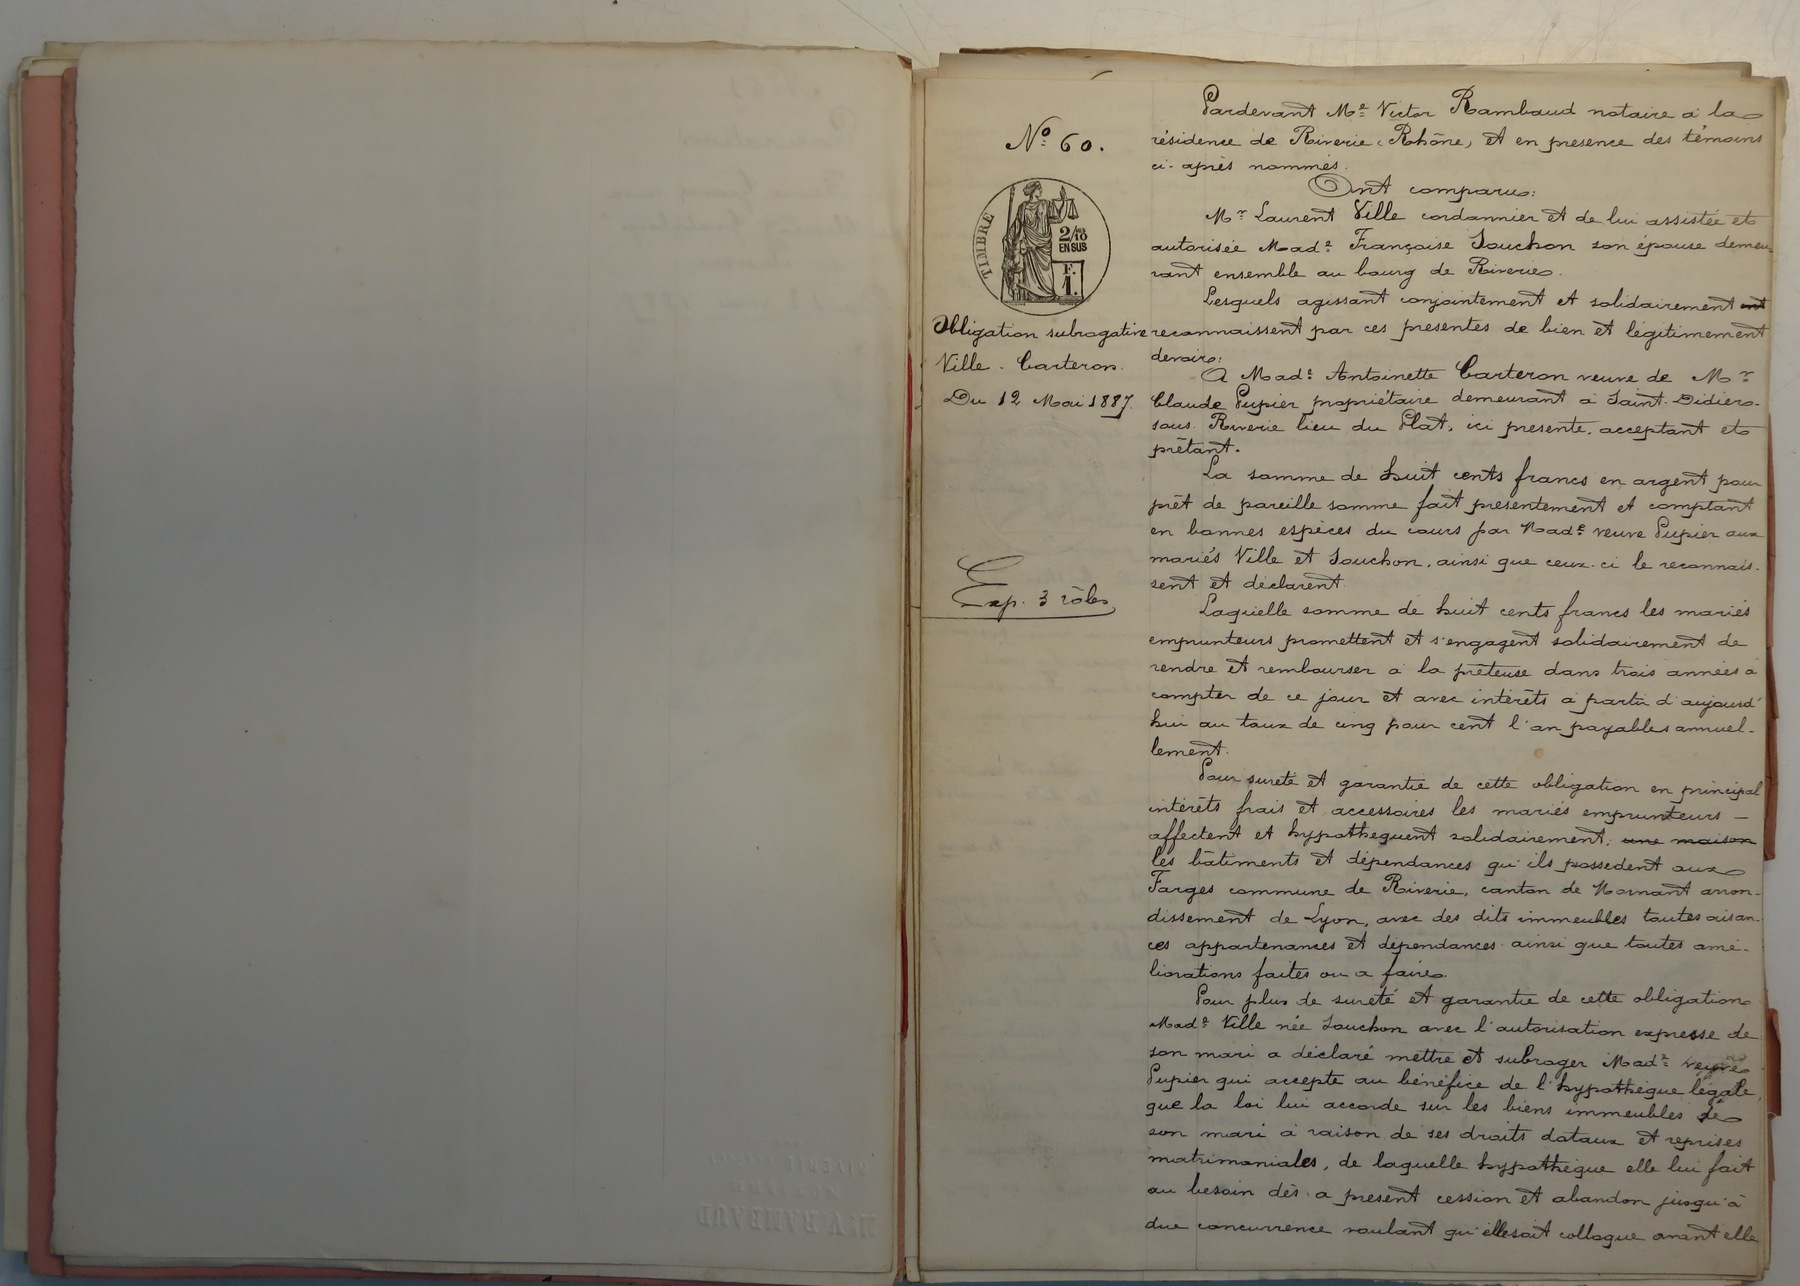 Nº 60.
TIMBRE
2/10
EN SUS
F.
1.
Obligation subrogative
Ville - Carteron.
Du 12 Mai 1887.
Exp. 3 rôles
Pardevant Me Victor Rambaud notaire à la
résidence de Riverie (Rhône) et en présence des témoins
ci-après nommés.
Ont comparu:
Mr Laurent Ville cordonnier et de lui assistée et
autorisée Made Françoise Souchon son épouse demeu-
rant ensemble au bourg de Riverie.
Lesquels agissant conjointement et solidairement ont
reconnaissent par ces présentes de bien et légitimement
devoir:
A Made Antoinette Carteron veuve de Mr
Claude Pupier propriétaire demeurant à Saint-Didier-
sous-Riverie lieu du Plat, ici présente, acceptant et
prêtant.
La somme de huit cents francs en argent pour
prêt de pareille somme fait présentement et comptant
en bonnes espèces du cours par Made veuve Pupier aux
mariés Ville et Souchon, ainsi que ceux-ci le reconnais-
sent et déclarent
Laquelle somme de huit cents francs les mariés
emprunteurs promettent et s'engagent solidairement de
rendre et rembourser à la prêteuse dans trois années à
compter de ce jour et avec intérêts à partir d'aujourd'
hui au taux de cinq pour cent l'an payables annuel-
lement.
Pour sureté et garantie de cette obligation en principal
intérêts frais et accessoires les mariés emprunteurs -
affectent et hypothèquent solidairement, une maison
les bâtiments et dépendances qu'ils possèdent aux
Farges commune de Riverie, canton de Mornant arron-
dissement de Lyon, avec des dits immeubles toutes aisan-
ces appartenances et dépendances ainsi que toutes amé-
liorations faites ou à faire.
Pour plus de sureté et garantie de cette obligation
Made Ville née Souchon avec l'autorisation expresse de
son mari a déclaré mettre et subroger Made veuve
Pupier qui accepte au bénéfice de l'hypothèque légale,
que la loi lui accorde sur les biens immeubles de
son mari à raison de ses droits dotaux et reprises
matrimoniales, de laquelle hypothèque elle lui fait
au besoin dès à présent cession et abandon jusqu'à
due concurrence voulant qu'elle soit colloque avant elle